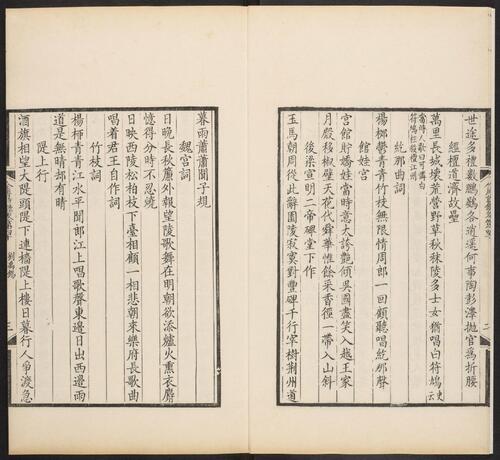 世途多禮數鵬鷃各逍遙何事陶彭澤拋官爲折腰
經檀道濟故壘
萬里長城壞荒營野草秋秣陵多士女猶唱白符鳩史云
當時人歌曰可憐白
符鳩枉殺檀江州
紇那曲詞
楊柳鬱青青竹枝無限情周郎一回顧聽唱紇那聲
館娃宮
宮館貯嬌娃當時意大誇豔傾吳國盡笑入越王家
月殿移椒壁天花代舜華惟餘采香徑一帶入山斜
後梁宣明二帝碑堂下作
玉馬朝周從此辭園陵寂寞對豐碑千行宰樹荆州道
二
劉禹錫
三
暮雨蕭蕭聞子規
魏宮詞
日晚長秋簾外報望陵歌舞在明朝欲添爐火熏衣麝
憶得分時不忍燒
日映西陵松柏枝下臺相顧一相悲朝來樂府長歌曲
唱着君王自作詞
竹枝詞
楊柳青青江水平聞郎江上唱歌聲東邊日出西邊雨
道是無晴却有晴
隄上行
酒旗相望大隄頭隄下連檣隄上樓日暮行人爭渡急